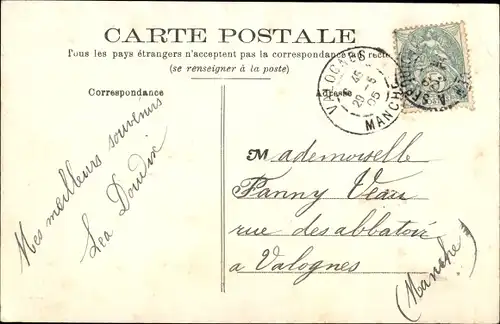 CARTE POSTALE
Tous les pays étrangers n'acceptent pas la correspondance au recto
(se renseigner à la poste)
Correspondance
Adresse
VALOGNES
45
29-5
05
MANCHE
Mes meilleurs souvenirs
Lea Doudix
Mademoiselle
Fanny Veau
rue des abbatoir
a Valognes
(Manche)